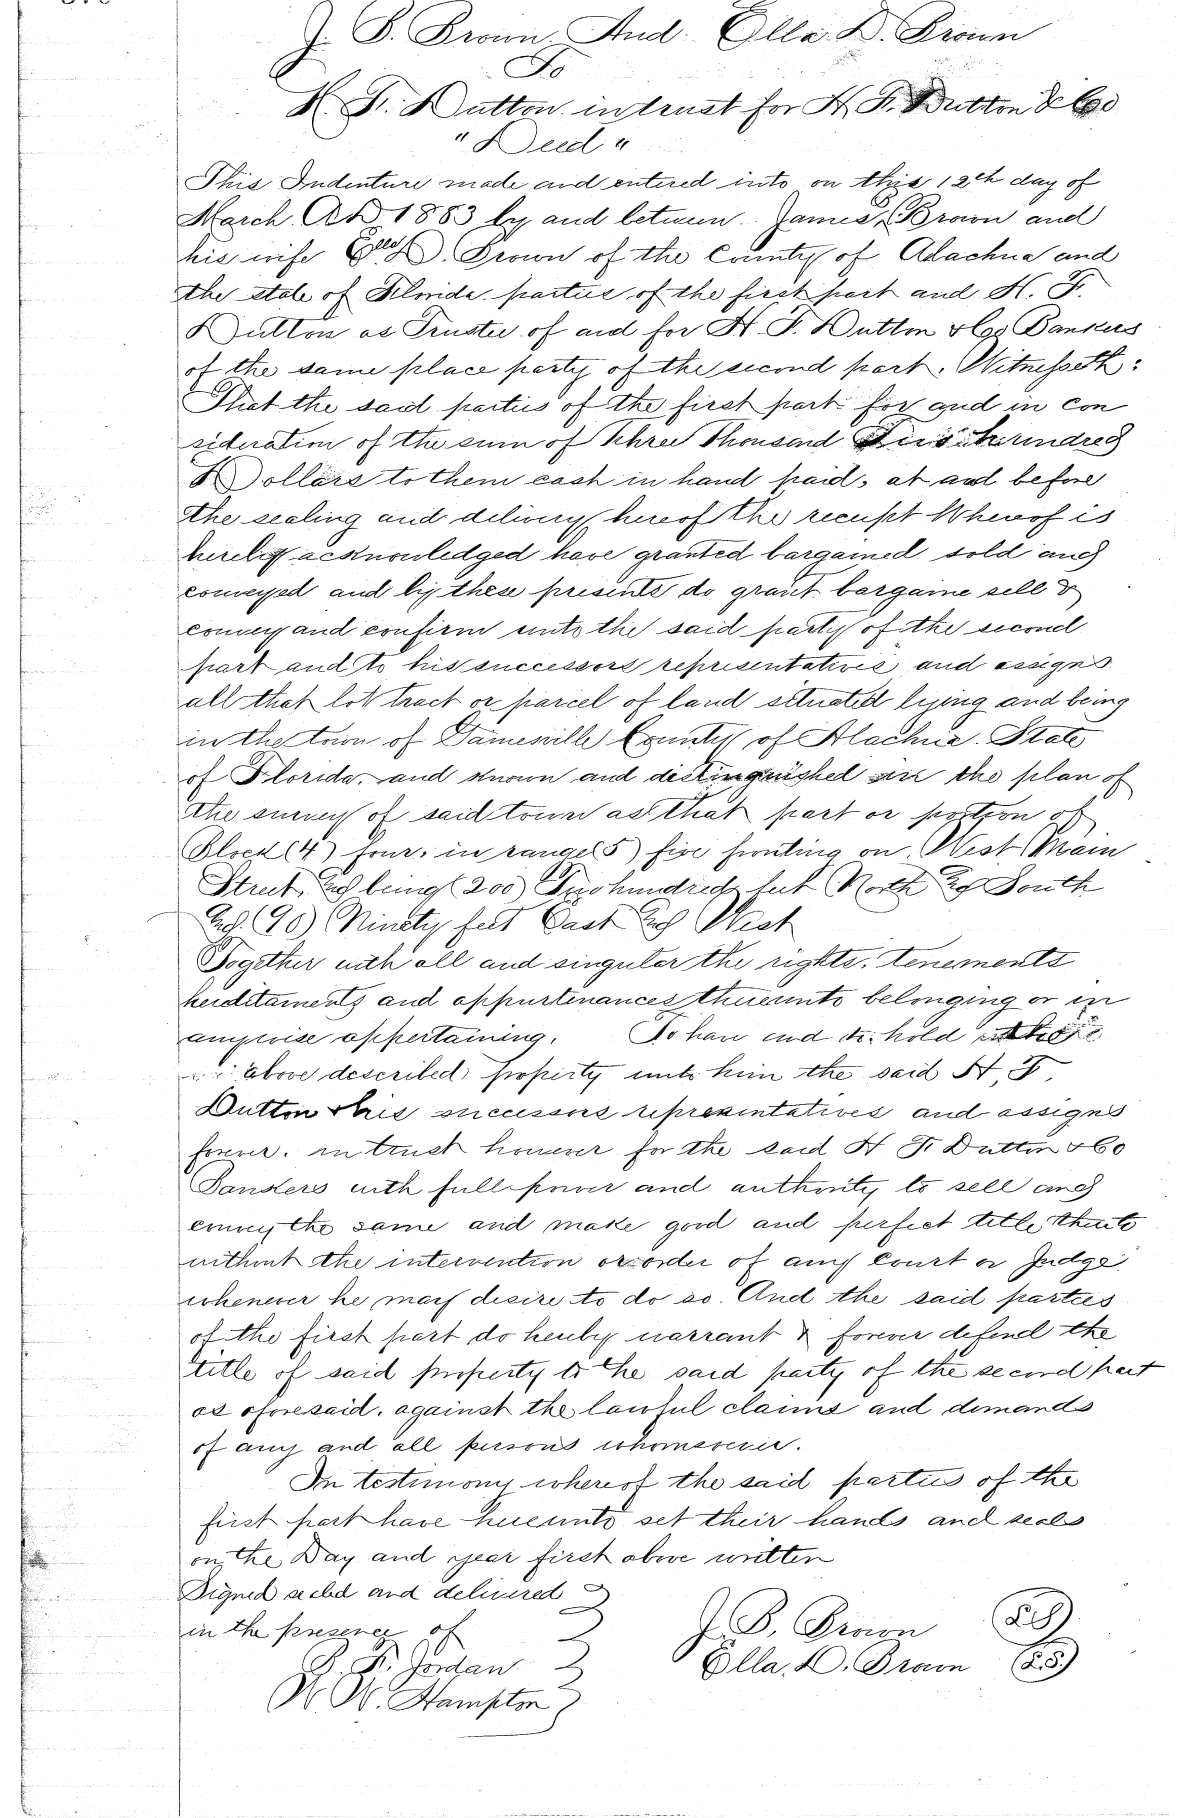 J. B. Brown And Ella D. Brown
To
H. F. Dutton in trust for H. F. Dutton & Co
"Deed"
This Indenture made and entered into on this 12th day of
March AD 1883 by and between James Brown and
his wife Ella D. Brown of the County of Alachua and
the state of Florida parties of the first part and H. F.
Dutton as Trustee of and for H. F. Dutton & Co Bankers
of the same place party of the second part. Witnesseth:
That the said parties of the first part for and in con
sideration of the sum of Three Thousand hundred
Dollars to them cash in hand paid, at and before
the sealing and delivery hereof the receipt Whereof is
hereby acknowledged have granted bargained sold and
conveyed and by these presents do grant bargaine sell &
convey and confirm unto the said party of the second
part and to his successors representatives and assigns
all that lot tract or parcel of land situated lying and being
in the town of Gainesville County of Alachua State
of Florida, and known and distinguished in the plan of
the survey of said town as that part or portion of
Block (4) four, in range (5) five fronting on West Main
Street, and being (200) Two hundred feet North and South
and (90) Ninety feet East and West
Together with all and singular the rights, tenements
heriditaments and appurtenances thereunto belonging or in
anywise appertaining. To have and to hold
above described property unto him the said H, F,
Dutton & his successors representatives and assigns
forever. in trust however for the said H F. Dutton & Co
Bankers with full power and authority to sell and
convey the same and make good and perfect title thereto
without the intervention or order of any Court or Judge
whenever he may desire to do so. And the said parties
of the first part do hereby warrant & forever defend the
title of said property to the said party of the second part
as aforesaid, against the lawful claims and demands
of any and all persons whomsoever.
In testimony whereof the said parties of the
first part have hereunto set their hands and seals
on the Day and year first above written
Signed sealed and delivered
in the presence of J. B. Brown (L.S)
Jordan Ella. D. Brown (L.S.)
W. W. Hampton